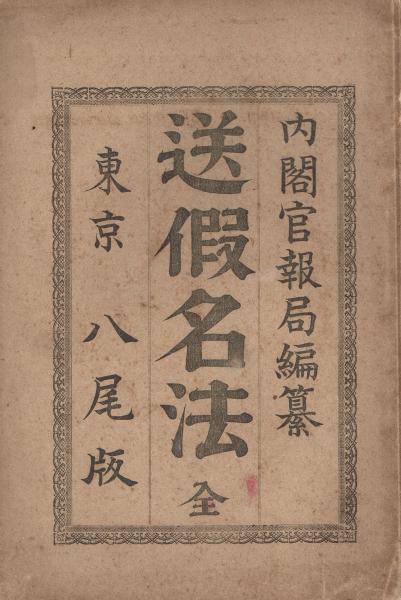 内閣官報局編纂
送假名法 全
東京 八尾版